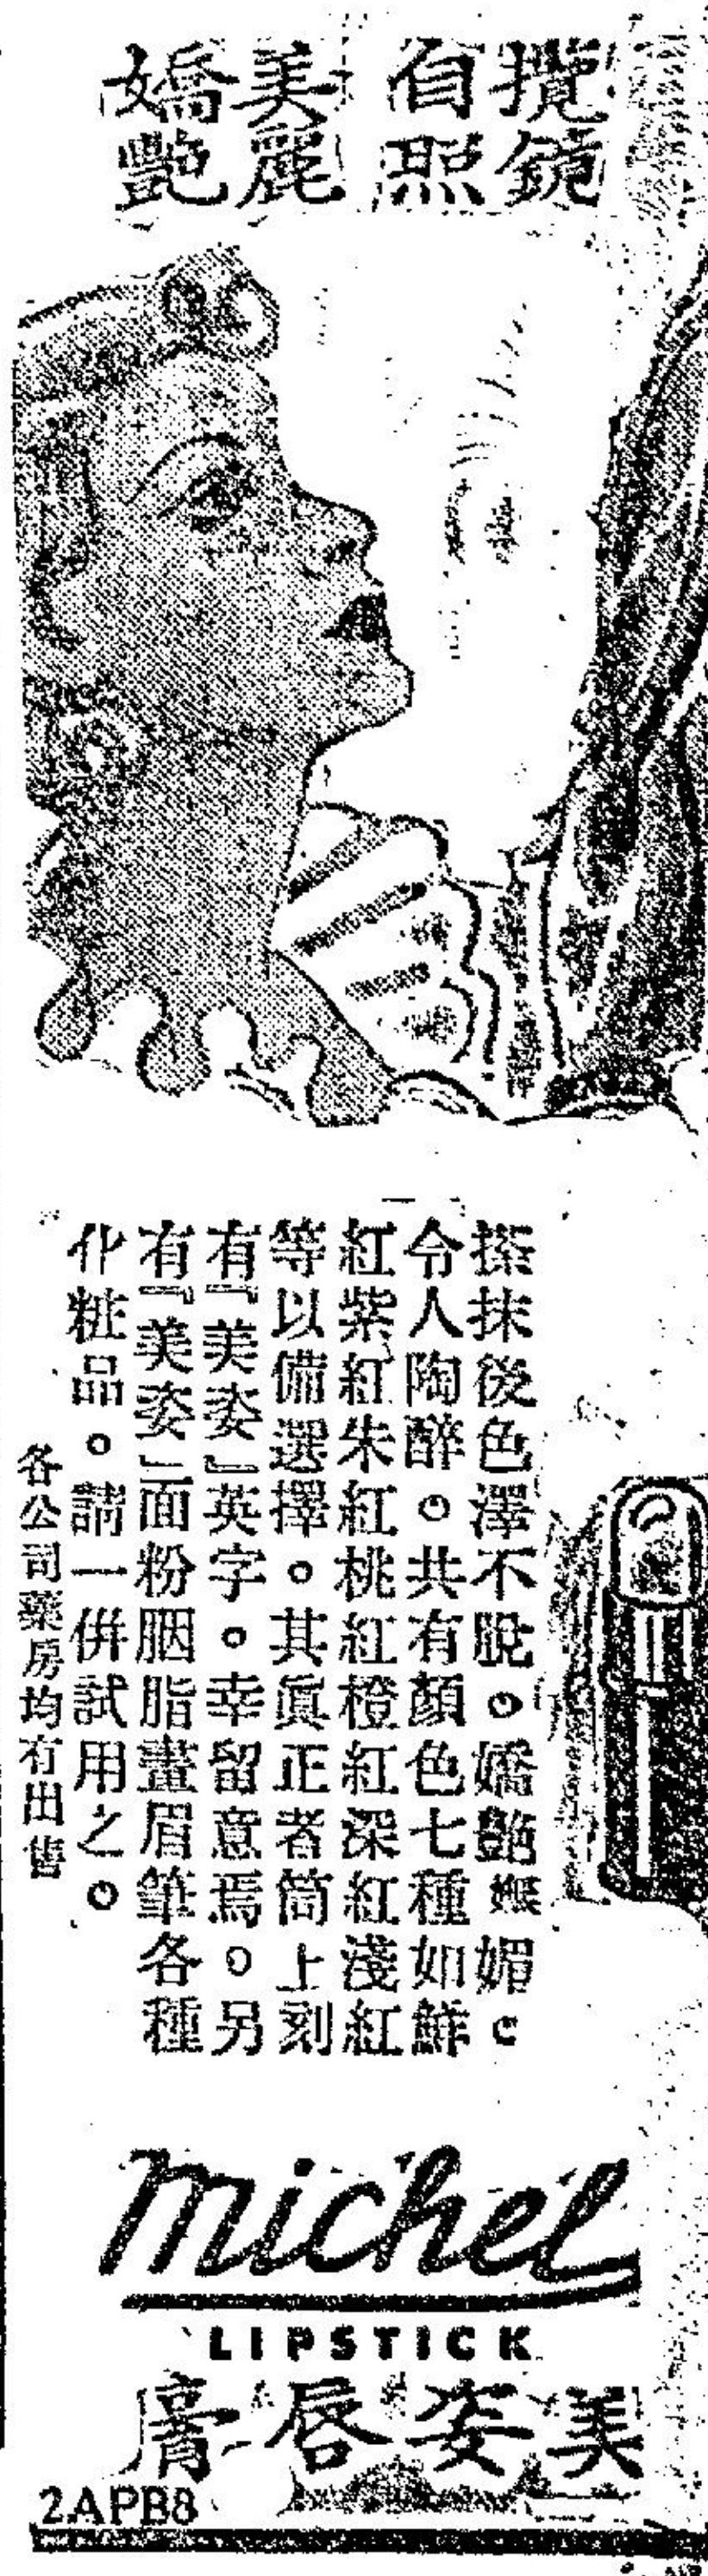 攬鏡
自照
美麗
嬌艷
搽抹後色澤不脫。嬌艷嫵媚。
令人陶醉。共有顏色七種如鮮
紅紫紅朱紅桃紅橙紅深紅淺紅
等以備選擇。其眞正者筒上刻
有『美姿』英字。幸留意焉。另
有『美姿』面粉胭脂畫眉筆各種
化粧品。請一併試用之。
各公司藥房均有出售
Michel
LIPSTICK
美姿唇膏
2APB8